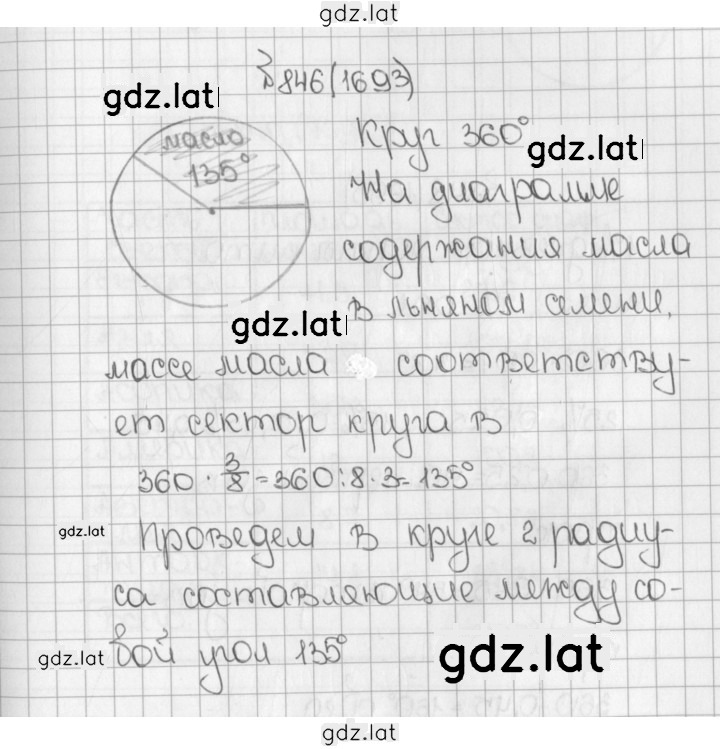 gdz.lat
№846(1693)
gdz.lat
масло
135°
Круг 360°
gdz.lat
На диаграмме
содержания масла
в льняном семени,
gdz.lat
массе масла соответству-
ет сектор круга в
360 · 3/8 = 360 : 8 · 3 = 135°
gdz.lat
Проведем в круге 2 радиу-
са составляющие между со-
бой угол 135°
gdz.lat
gdz.lat
gdz.lat